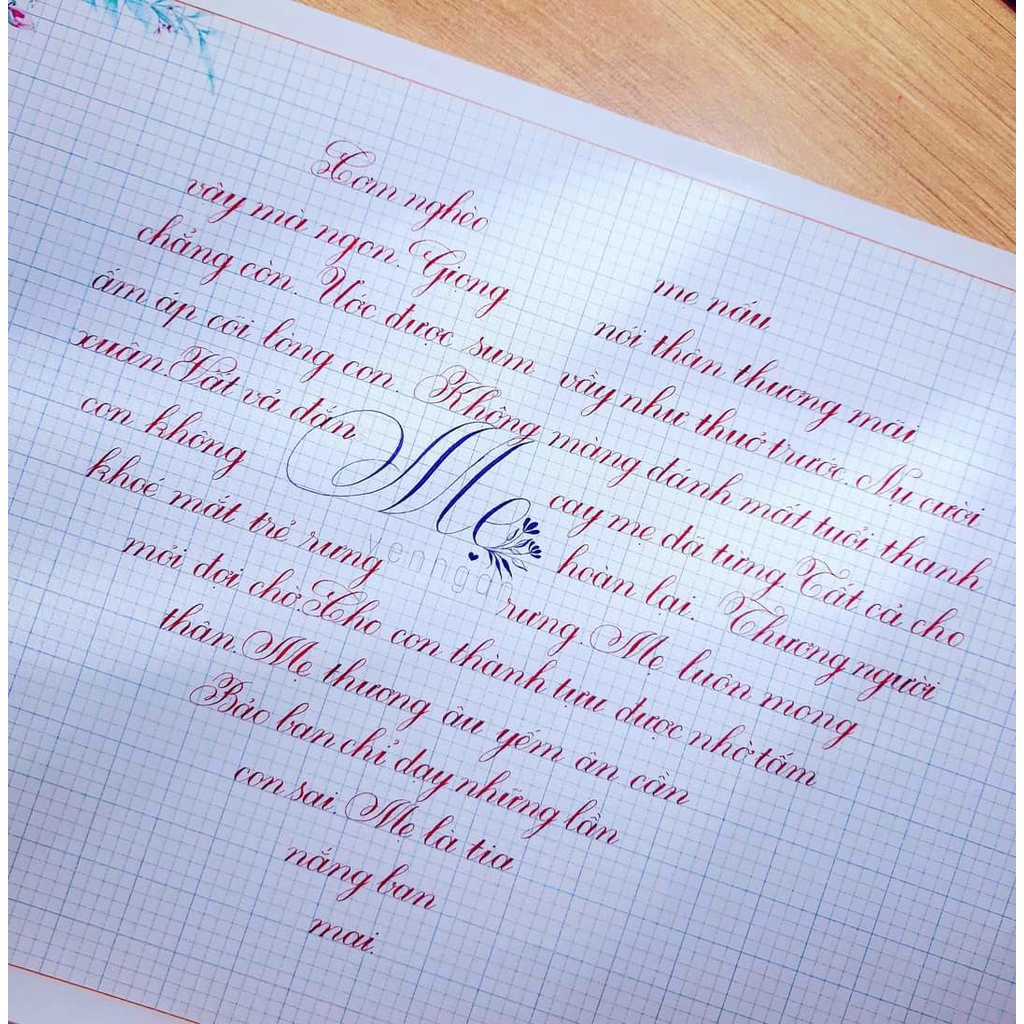 Cơm nghèo mẹ nấu
vậy mà ngon. Giọng nói thân thương mãi
chẳng còn. Ước được sum vầy như thuở trước. Nụ cười
ấm áp cõi lòng con. Không màng đánh mất tuổi thanh
xuân. Vất vả đắn cay mẹ đã từng. Tất cả cho
con không hoàn lại. Thương người
Mẹ
khoé mắt trẻ rưng rưng. Mẹ luôn mong
mỏi đợi chờ. Cho con thành tựu được nhờ tấm
thân. Mẹ thương âu yếm ân cần
Bảo ban chỉ dạy những lần
con sai. Mẹ là tia
nắng ban
mai.